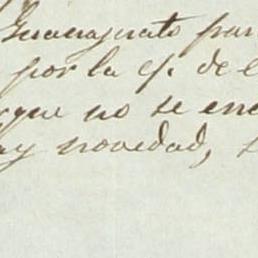 Guanajuato par
por la q. de e
que no se enc
ay novedad, s